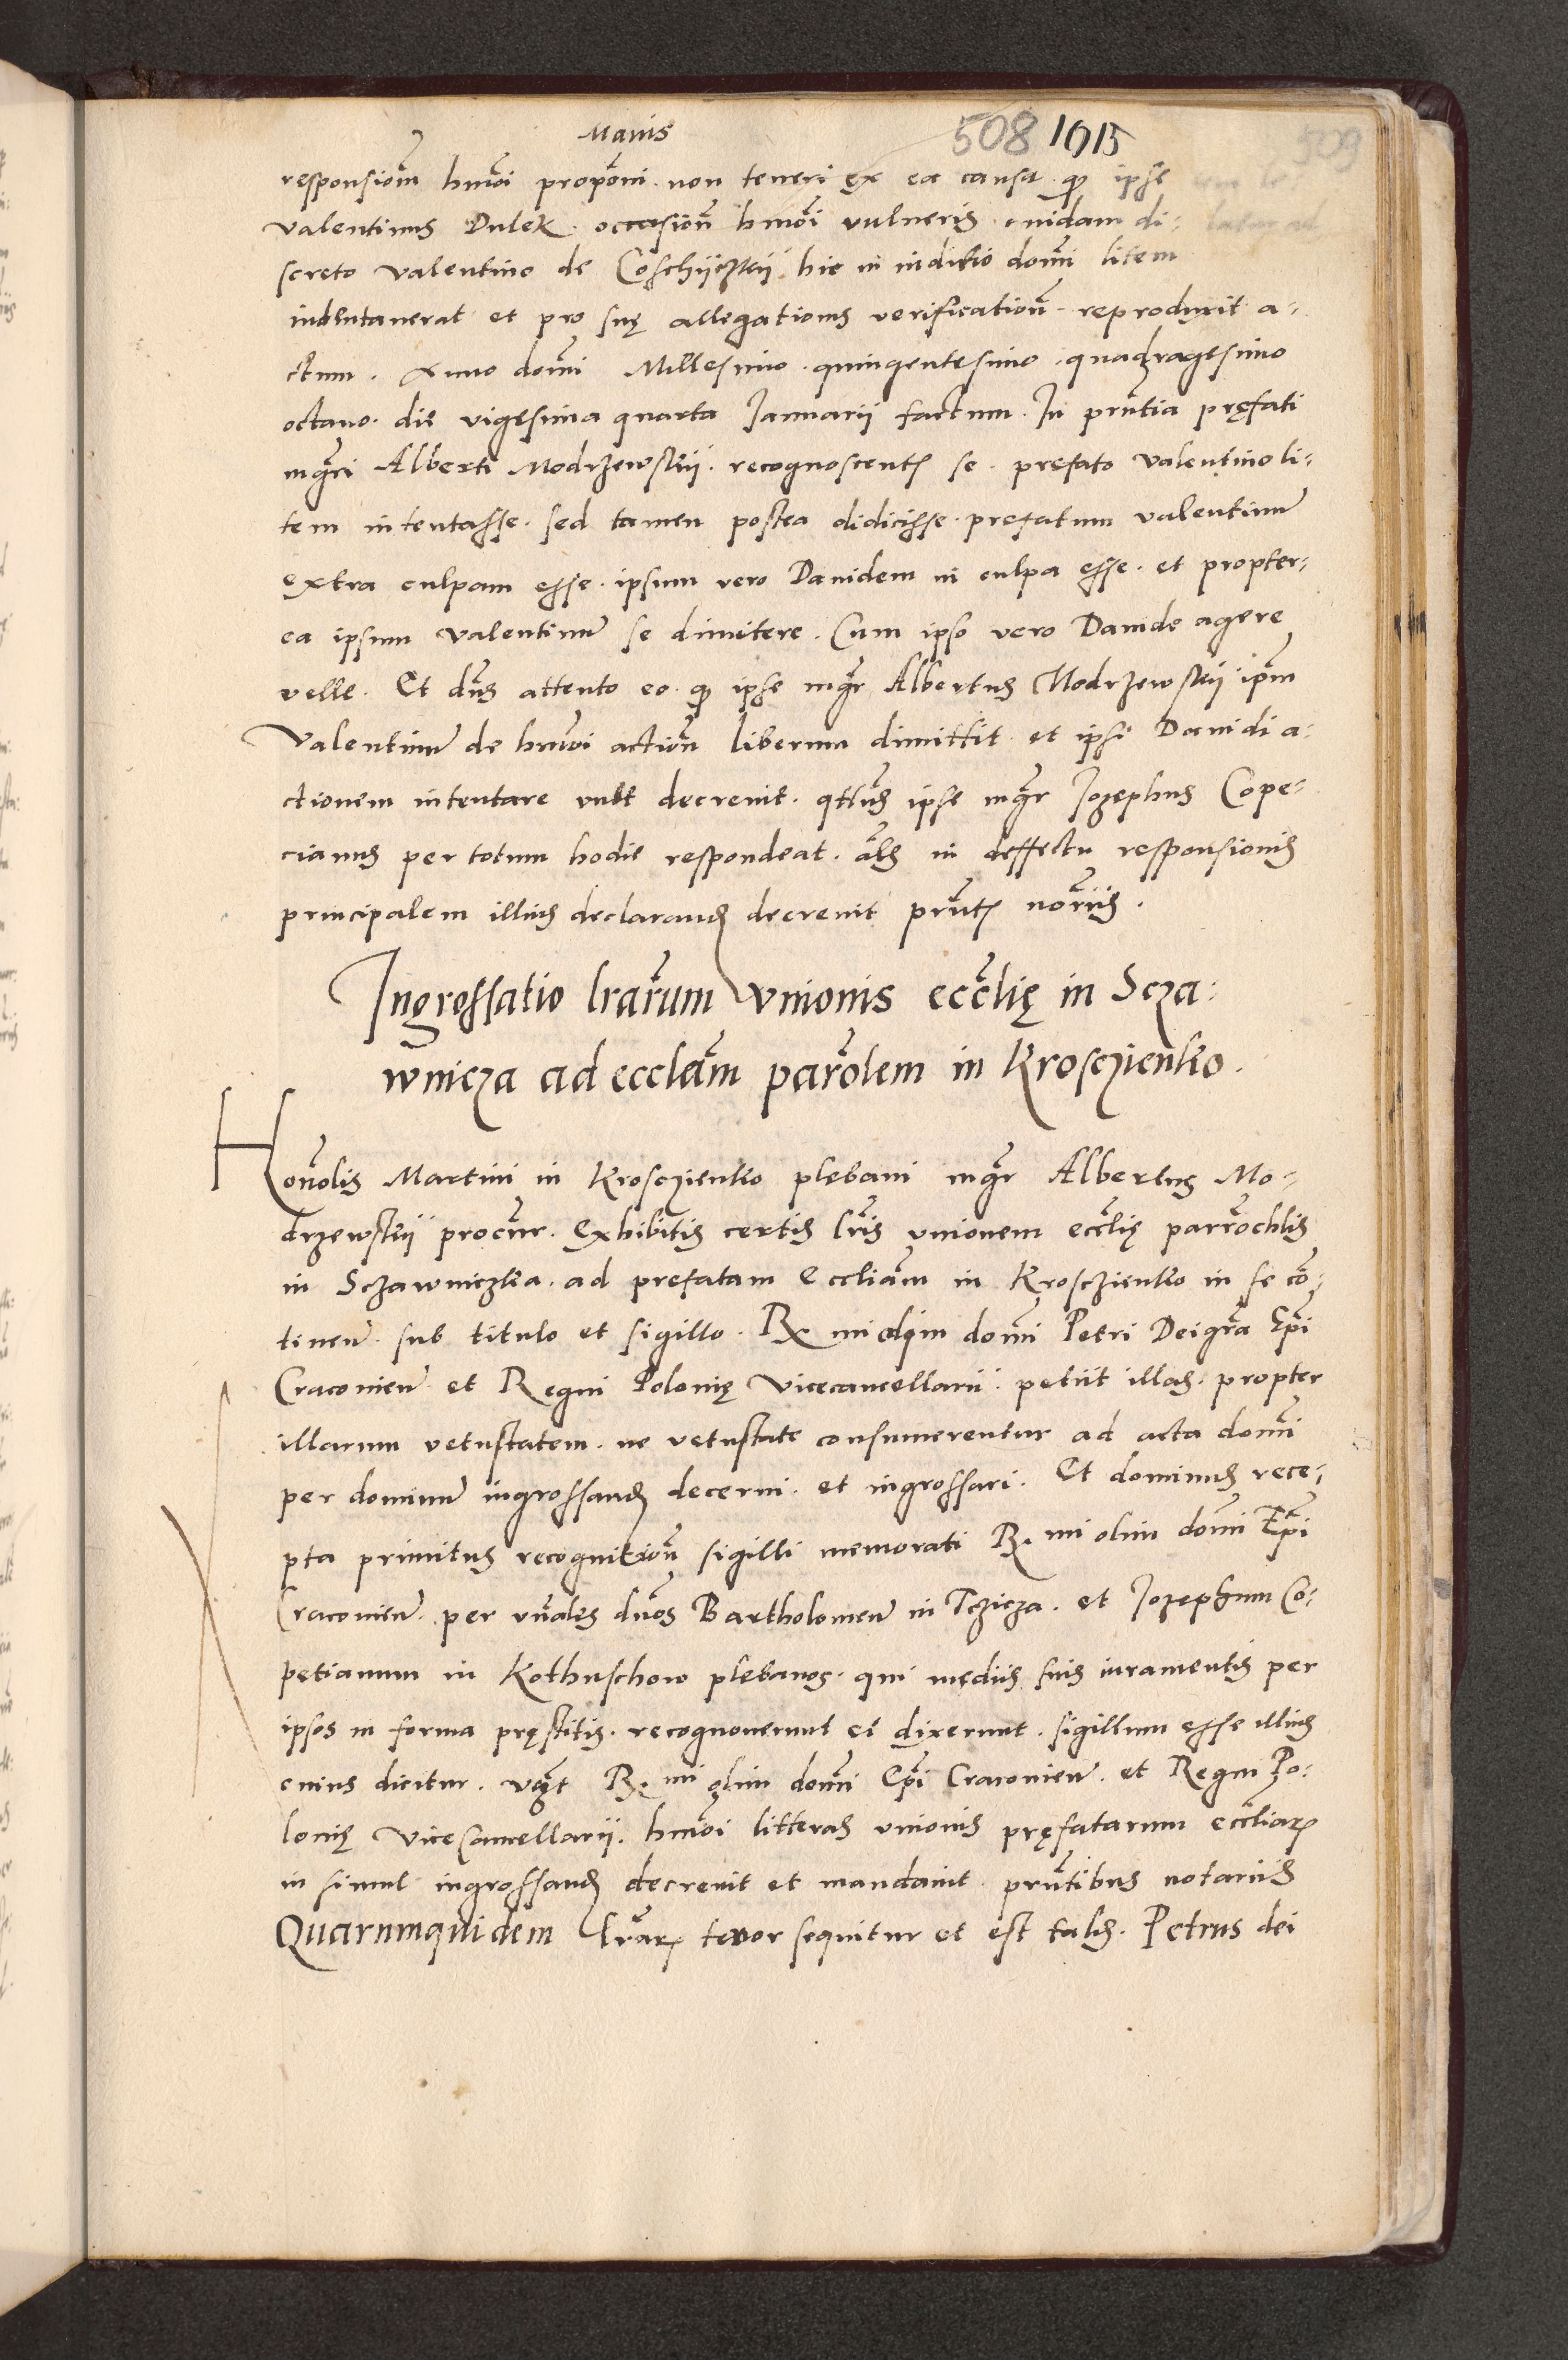 Maiis
508 1015
509
responsionem hmoi proponi non teneri ex ea causa qz ipse
valentinus Dulek occasion hmoi vulneris cuidam di-
screto valentino de Coschÿczkÿ hic in iuditio domi litem
indentauerat et pro suę allegationis verification reproduxit a-
ctum. Anno domi Millesimo quingentesimo quadragesimo
octauo die vigesima quarta Januarii factum. In prntia pręfati
mgri Alberti Modrzewskÿ recognoscent se pręfato valentino li-
tem intentasse sed tamen postea didicisse prefatum valentinu
extra culpam esse ipsum vero Dauidem in culpa esse et propter-
ea ipsum valentinu se dimitere. Cum ipso vero Dauide agere
velle. Et dns attento eo qz ipse mgr Albertus Modrzewskÿ ipm
Valentinu de hmoi action liberum dimittit et ipsi Dauidi a-
ctionem intentare vult decreuit qtus ipse mgr Jozephus Cope-
cianus per totum hodie respondeat als in deffectu responsionis
principalem illius declarand decreuit prnt noriis.
Ingrossatio lrarum vnionis ecclię in Scza-
wnicza ad ecclam parolem in Krosczienko.
Honolis Martini in Krosczienko plebani mgr Albertus Mo-
drzewskÿ procur. Exhibitis certis lris vnionem ecclię parrochlis
in Sczawniczka ad prefatam Eccliam in Krosczienko in se co-
tinen sub titulo et sigillo Rx mi olim domi Petri Dei gra Epi
Cracouien et Regni Polonię Vicecancellarii petiit illas propter
illarum vetustatem ne vetustate consumerentur ad acta domi
per dominu ingrossand decerni et ingrossari. Et dominus rece-
pta primitus recognition sigilli memorati R. mi olim domi Epi
Cracouien per vnales dnos Bartholomeu in Tczicza et Jozephum Co-
petianum in Kothuschow plebanos qui mediis suis iuramentis per
ipsos in forma pręstitis recognouerunt et dixerunt sigillum esse illius
cuius dicitur vqt R. mi olim domi Epi Cracouien et Regni Po-
lonię Vicecancellarii hmoi litteras vnionis pręfatarum eccliar
in simul ingrossand decreuit et mandauit prntibus notariis
Quarumquidem lrar tenor sequitur et est talis. Petrus dei